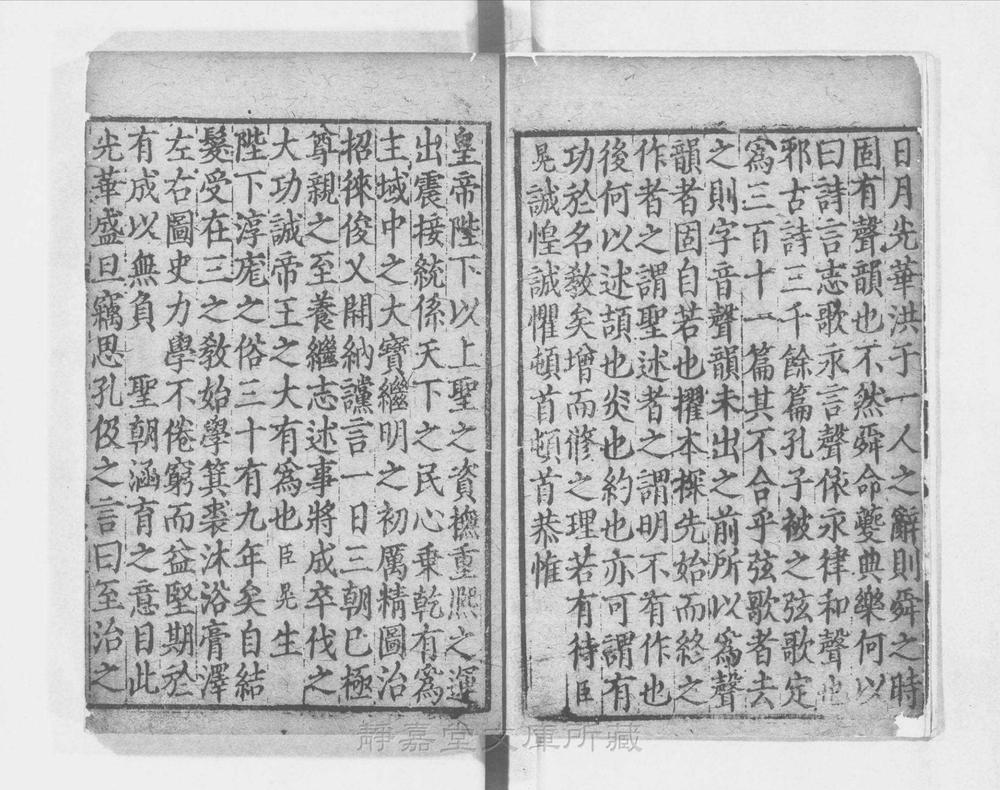 日月光華洪于一人之辭則舜之時
固有聲韻也不然舜命夔典樂何以
曰詩言志歌永言聲依永律和聲也
邪古詩三千餘篇孔子被之弦歌定
爲三百十一篇其不合乎弦歌者去
之則字音聲韻未出之前所以爲聲
韻者固自若也擢本探先始而終之
作者之謂聖述者之謂明不有作也
後何以述頡也炎也約也亦可謂有
功於名敎矣增而修之理若有待臣
晃誠惶誠懼頓首頓首恭惟
皇帝陛下以上聖之資撫重熈之運
出震接統係天下之民心乗乾有爲
主域中之大寳繼明之初厲精圖治
招徠俊乂開納讜言一日三朝巳極
尊親之至養繼志述事將成卒伐之
大功誠帝王之大有爲也臣晃生
陛下淳厖之俗三十有九年矣自結
髮受在三之敎始學箕裘沐浴膏澤
左右圖史力學不倦窮而益堅期於
有成以無負 聖朝涵育之意目此
光華盛旦竊思孔伋之言曰至治之
靜嘉堂文庫所藏